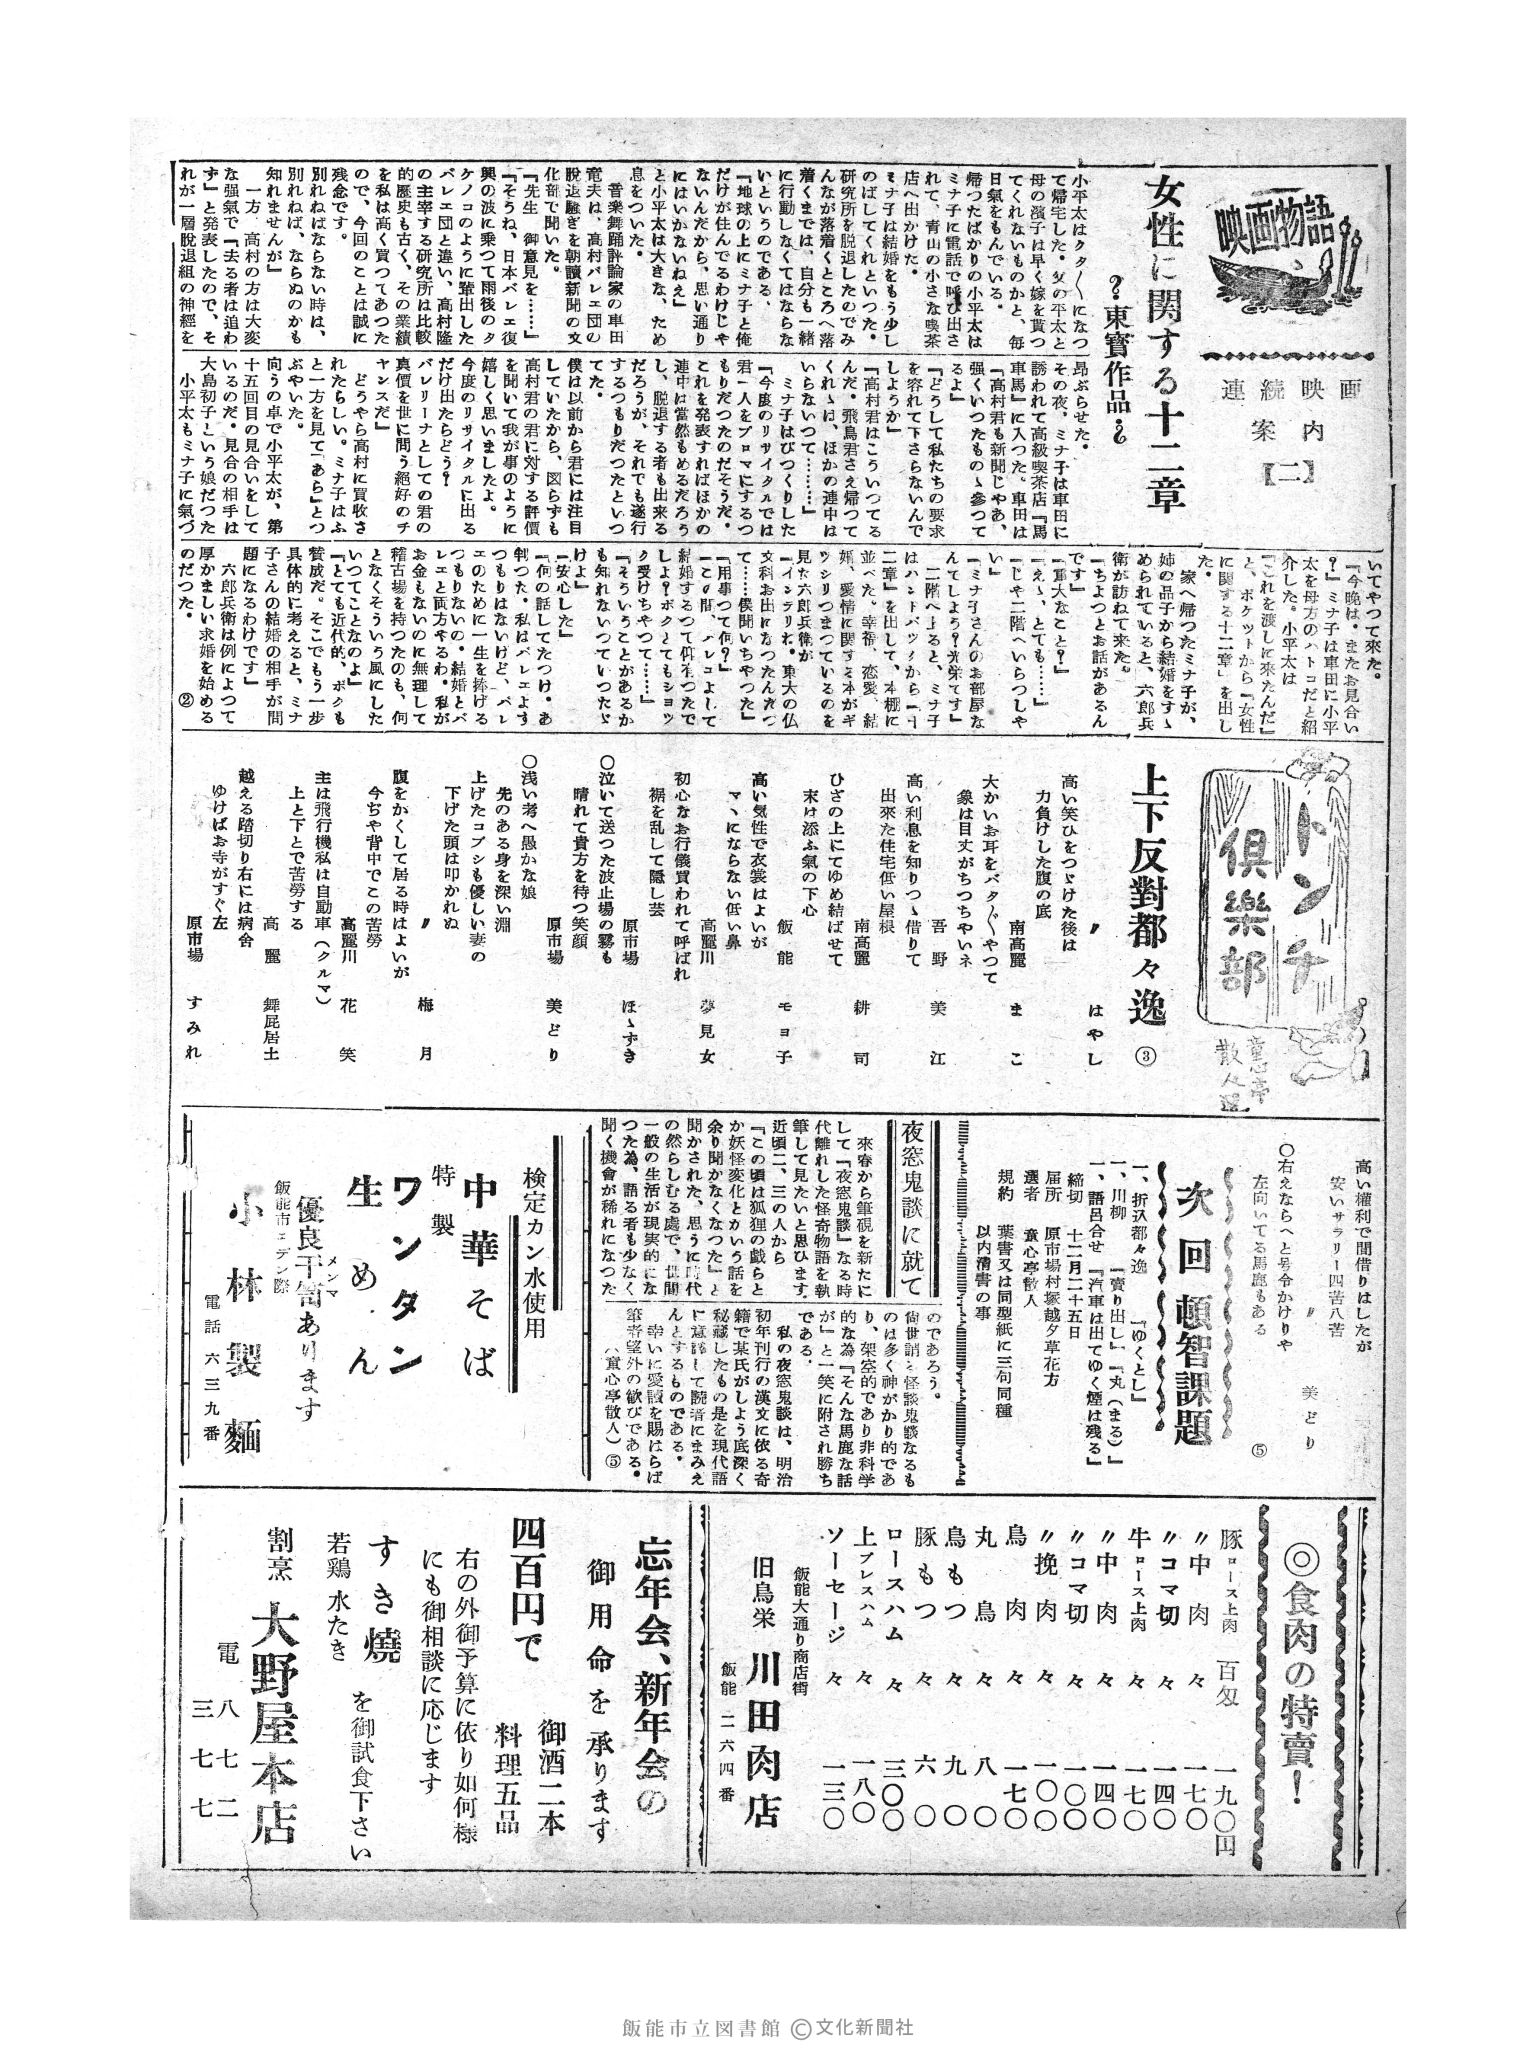 映画物語
連続映画
案内
【二】
女性に関する十二章
？東寳作品？
小平太はクタ／＼になつ
て帰宅した。父の平太と
母の濱子は早く嫁を貰つ
てくれないものかと、毎
日氣をもんでいる。
帰つたばかりの小平太は
ミナ子に電話で呼び出さ
れて、青山の小さな喫茶
店へ出かけた。
ミナ子は結婚をもう少し
のばしてくれといつた。
研究所を脱退したのでみ
んなが落着くところへ落
着くまでは、自分も一緒
に行動しなくてはならな
いというのである。
『地球の上にミナ子と俺
だけが住んでるわけじや
ないんだから、思い通り
にはいかないねえ』
と小平太は大きな、ため
息をついた。
音楽舞踊評論家の車田
竜夫は、高村バレエ団の
脱退騒ぎを朝讀新聞の文
化部で聞いた。
『先生 御意見を……』
『そうね、日本バレエ復
興の波に乗つて雨後のタ
ケノコのように輩出した
バレエ団と違い、高村隆
の主宰する研究所は比較
的歴史も古く、その業績
を私は高く買つてあつた
ので、今回のことは誠に
残念です。
別れねばならない時は、
別れねば、ならぬのかも
知れませんが』
一方、高村の方は大変
な强氣で『去る者は追わ
ず』と発表したので、そ
れが一層脱退組の神経を
昂ぶらせた。
その夜、ミナ子は車田に
誘われて高級喫茶店『馬
車馬』に入つた。車田は
『高村君も新聞じやあ、
强くいつたものゝ参つて
るよ』
『どうして私たちの要求
を容れて下さらないんで
しようか』
『高村君はこういつてる
んだ。飛鳥君さえ帰つて
くれゝは、ほかの連中は
いらないつて………』
ミナ子はびつくりした
『今度のリサイタルでは
君一人をプロマにするつ
もりだつたのだそうだ。
これを発表すればほかの
連中は当然もめるだろう
し、脱退する者も出来る
だろうが、それでも遂行
するつもりだつたといつ
てた。
僕は以前から君には注目
していたから、図らずも
高村君の君に対する評價
を聞いて我が事のように
嬉しく思いましたよ。
今度のリサイタルに出る
だけ出たらどう？
バレリーナとしての君の
真價を世に問う絶好のチ
ヤンスだ』
どうやら高村に買收さ
れたらしい。ミナ子はふ
と一方を見て『あら』とつ
ぶやいた。
向うの卓で小平太が、第
十五回目の見合いをして
いるのだ。見合の相手は
大島初子という娘だつた
小平太もミナ子に氣づ
いてやつて來た。
『今晩は。またお見合い
？』ミナ子は車田に小平
太を母方のハトコだと紹
介した。小平太は
『これを渡しに來たんだ』
と、ポケットから『女性
に関する十二章』を出し
た。
家へ帰つたミナ子が、
姉の品子から結婚をすゝ
められていると、六郎兵
衛が訪ねて来た。
『ちよつとお話があるん
です』
『重大なこと？』
『えゝ、とても……』
『じや二階へいらつしや
い』
『ミナ子さんのお部屋な
んてしよう？光栄です』
二階へ上ると、ミナ子
はハンドバツグから『十
二章』を出して、本棚に
並べた。幸福、恋愛、結
婚、愛情に関する本がギ
ツシリつまつているのを
見た六郎兵衛が
『インテリね。東大の仏
文科お出になつたんだつ
て……僕聞いちやつた』
『用事つて何？』
『この間、バレエよして
結婚するつて仰有つたで
しよ？ボクとてもシヨツ
ク受けちやつて……』
『そういうことがあるか
も知れないつていつたゞ
けよ』
『安心した』
『何の話してたつけ。あ
判つた。私はバレエよす
つもりはないけど、バレ
エのために一生を捧げる
つもりない の。結婚とバ
レエと両方やるわ。私が
お金もないのに無理して
稽古場を持つたのも、何
となくそういう風にした
いつてことなのよ』
『とても近代的、ボクも
賛成だ。そこでもう一步
具体的に考えると、ミナ
子さんの結婚の相手が問
題になるわけです』
六郎兵衛は例によつて
厚かましい求婚を始める
のだつた。 ②
トンチ
倶樂部
童心亭
散人選
上下反對都々逸 ③
高い笑ひをつゞけた後は
力負けした腹の底
〃 はやし
大かいお耳をパタ／＼やつて
象は目丈がちつちやいネ
南高麗 まこ
高い利息を知りつゝ借りて
出來た住宅低い屋根
吾野 美江
ひざの上にてゆめ結ばせて
末は添ふ氣の下心
南高麗 耕司
高い気性で衣裳はよいが
マヽにならない低い鼻
飯能 モヨ子
初心なお行儀買われて呼ばれ
裾を乱して隠し芸
高麗川 夢見女
○泣いて送つた波止場の霧も
晴れて貴方を待つ笑顔
原市場 ほゝずき
○浅い考へ愚かな娘
先のある身を深い淵
原市場 美どり
上げたコブシも優しい妻の
下げた頭は叩かれぬ
〃 梅月
腹をかくして居る時はよいが
今ぢや背中でこの苦勞
高麗川 花笑
主は飛行機私は自動車（クルマ）
上と下とで苦勞する
高麗 舞屁居士
越える踏切り右には病舎
ゆけばお寺がすぐ左
原市場 すみれ
高い權利で間借りはしたが
安いサラリー四苦八苦
〃 美どり
○右えならへと号令かけりや
左向いてる馬鹿もある
⑤
次回頓智課題
一、折込都々逸 『ゆくとし』
一、川柳 『賣り出し』『丸（まる）』
一、語呂合せ 『汽車は出てゆく煙は残る』
締切 十二月二十五日
届所 原市場村塚越夕草花方
選者 童心亭散人
規約 葉書又は同型紙に三句同種
以内清書の事
夜窓鬼談に就て
來春から筆硯を新たに
して『夜窓鬼談』なる時
代離れした怪奇物語を執
筆して見たいと思ひます。
近頃二、三の人から
『この頃は狐狸の戯らと
か妖怪変化とかいう話を
余り聞かなくなつた』と
聞かされた、思うに時代
の然らしむる處で、世間
一般の生活が現実的にな
つた為、語る者も少なく
聞く機會が稀れになつた
のであろう。
尚世誚る怪談鬼談なるも
のは多く神がかり的であ
り、架空的であり非科学
的な為『そんな馬鹿な話
が』と一笑に附され勝ち
である。
私の夜窓鬼談は、明治
初年刊行の漢文に依る奇
籍で某氏がしよう底深く
秘藏したもの是を現代語
に意譯して読者にまみえ
んとするものである。
幸いに愛讀を賜はらば
筆者望外の歓びである。
（童心亭散人）⑤
検定カン水使用
中華そば
特製
ワンタン
生めん
優良干筍あります
メンマ
飯能市エデン際
小林製麵
電話 六三九番
◎食肉の特賣！
豚ロース上肉 百匁 一九〇円
〃中肉 々 一七〇
〃コマ切 々 一四〇
牛ロース上肉 々 一七〇
〃中肉 々 一四〇
〃コマ切 々 一〇〇
〃挽肉 々 一〇〇
鳥肉 々 一七〇
丸鳥 々 八〇
鳥もつ 々 九〇
豚もつ 々 六〇
ロースハム 々 三〇〇
上プレスハム 々 一八〇
ソーセージ 々 一三〇
飯能大通り商店街
旧鳥栄 川田肉店
飯能 二六四番
忘年会、新年会の
御用命を承ります
四百円で
御酒二本
料理五品
右の外御予算に依り如何様
にも御相談に応じます
すき燒
若鶏水たき
を御試食下さい
割烹 大野屋本店
電 八七二
三七七
飯能市立図書館 ©文化新聞社